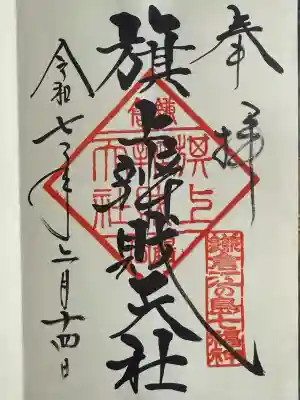 奉拝
旗上辨財天社
令和七年二月十四日
旗上
辨財
天社
鎌倉江の島七福神